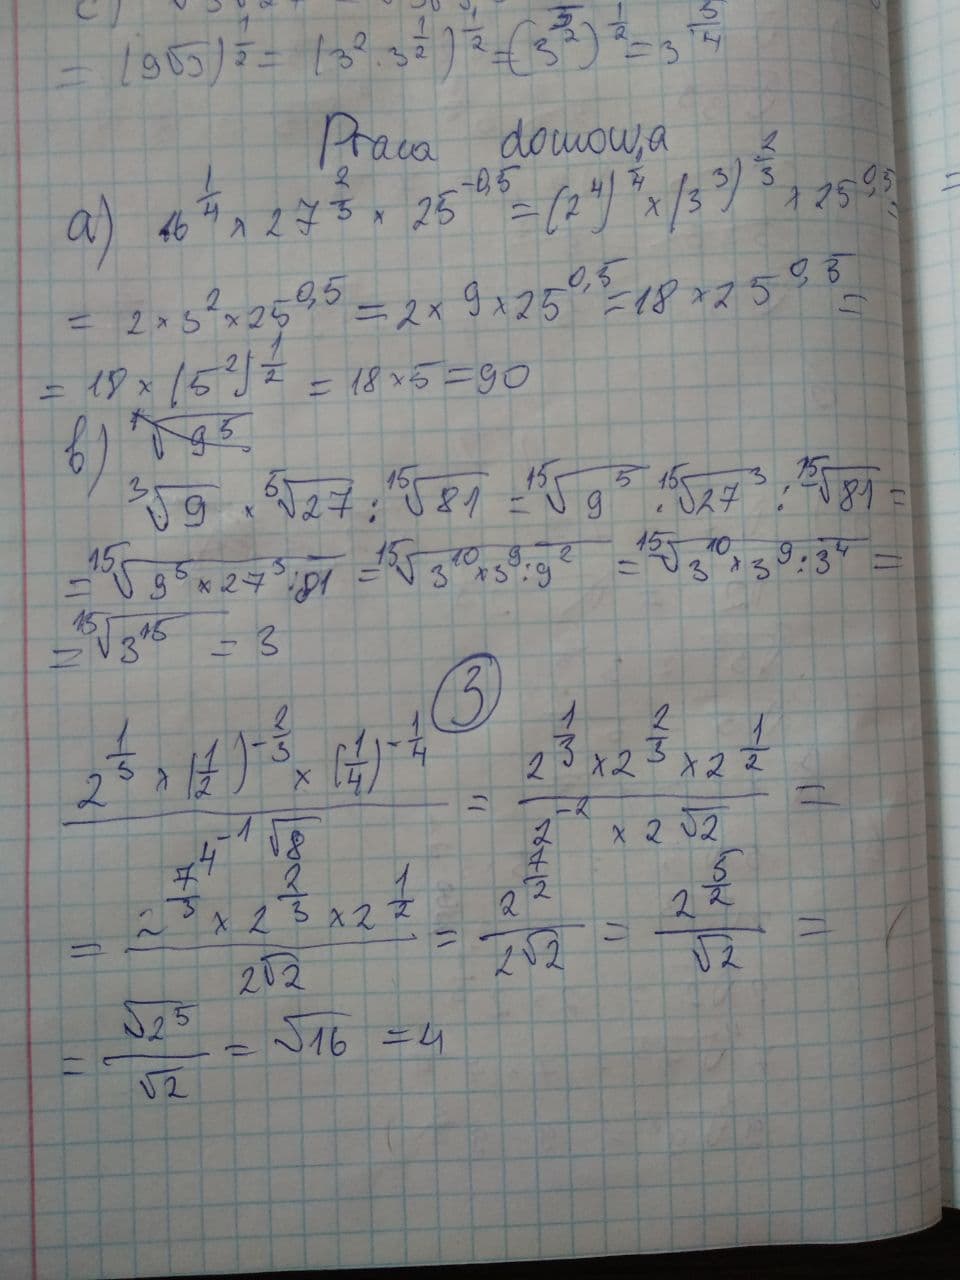 = (9√3)^(1/2) = (3² · 3^(1/2))^(1/2) = (3^(5/2))^(1/2) = 3^(5/4)
Praca domowa
a) 16^(1/4) × 27^(2/3) × 25^(-0,5) = (2⁴)^(1/4) × (3³)^(2/3) × 25^(0,5) =
= 2 × 3² × 25^(0,5) = 2 × 9 × 25^(0,5) = 18 × 25^(0,5) =
= 18 × (5²)^(1/2) = 18 × 5 = 90
b)
³√9 × ⁵√27 : ¹⁵√81 = ¹⁵√9⁵ · ¹⁵√27³ : ¹⁵√81 =
= ¹⁵√(9⁵ × 27³ : 81) = ¹⁵√(3¹⁰ × 3⁹ : 9²) = ¹⁵√(3¹⁰ × 3⁹ : 3⁴) =
= ¹⁵√3¹⁵ = 3
3
(2^(1/3) × (1/2)^(-2/3) × (1/4)^(-1/4)) / (4^(-1) √8) = (2^(1/3) × 2^(2/3) × 2^(1/2)) / (2^(-2) × 2√2) =
= (2^(7/3) × 2^(2/3) × 2^(1/2)) / (2√2) = 2^(7/2) / (2√2) = 2^(5/2) / √2 =
= √2⁵ / √2 = √16 = 4